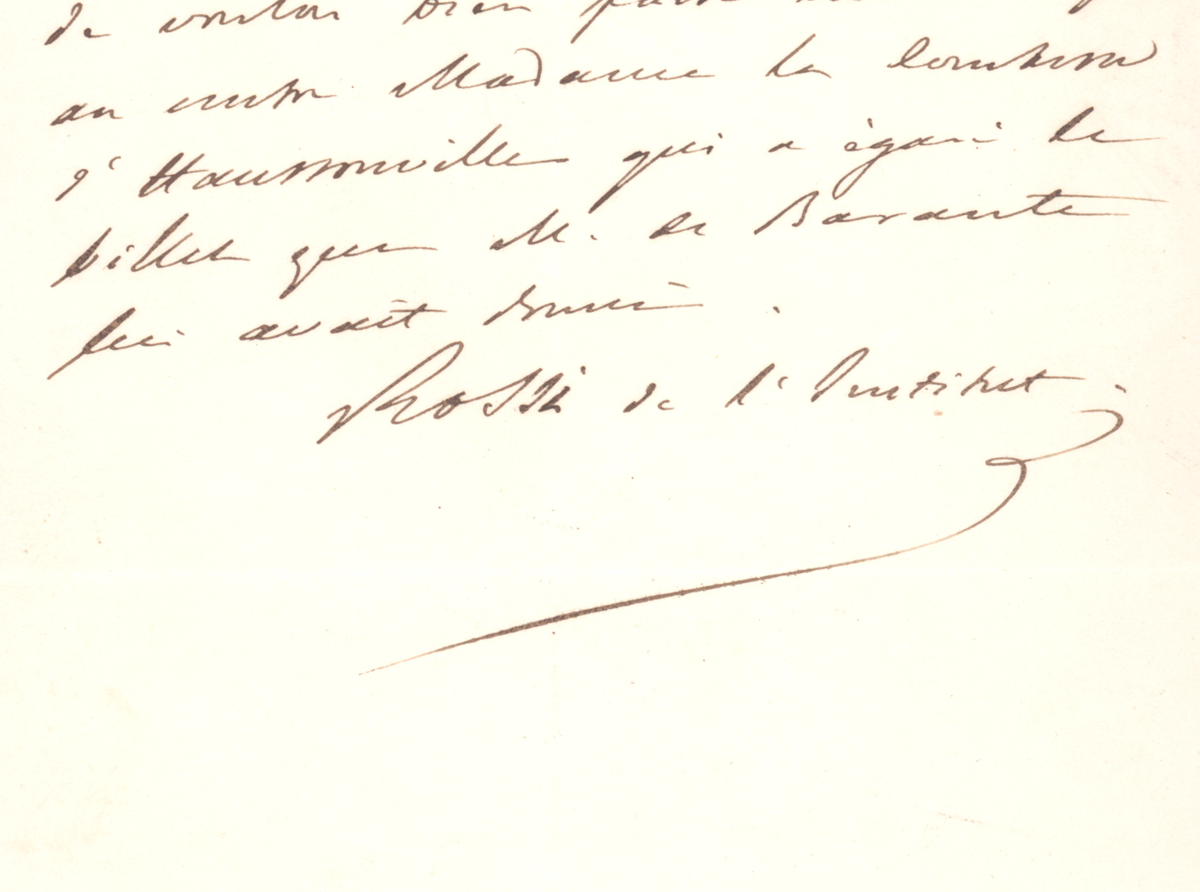 de vouloir bien faire
au centre Madame la Comtesse
d'Haussonville qui a égaré le
billet que M. de Barante
lui avait donné.
Rossi de l'Institut.